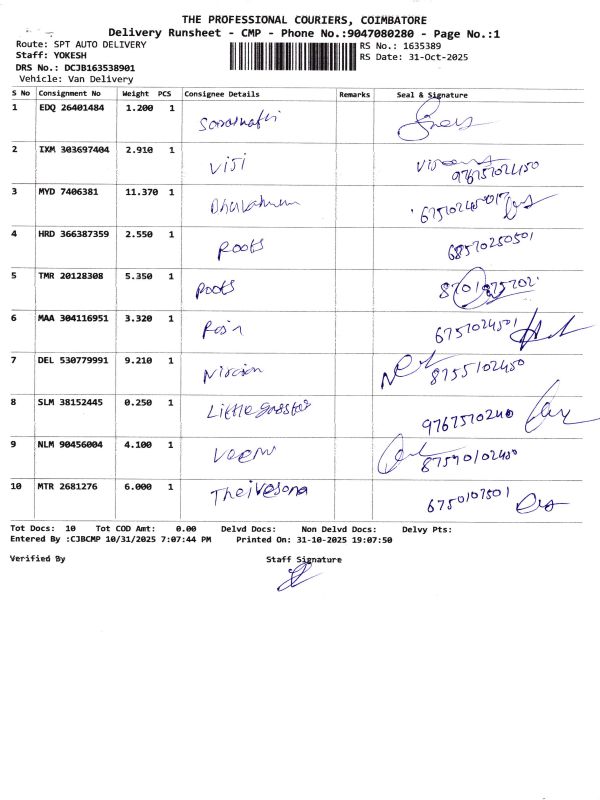 THE PROFESSIONAL COURIERS, COIMBATORE
Delivery Runsheet - CMP - Phone No.:9047080280 - Page No.:1
Route: SPT AUTO DELIVERY RS No.: 1635389
Staff: YOKESH RS Date: 31-Oct-2025
DRS No.: DCJB163538901
Vehicle: Van Delivery
S No Consignment No Weight PCS Consignee Details Remarks Seal & Signature
1 EDQ 26401484 1.200 1
2 IXM 303697404 2.910 1 Viji
3 MYD 7406381 11.370 1
4 HRD 366387359 2.550 1 Roots 68570250501
5 TMR 20128308 5.350 1 Roots
6 MAA 304116951 3.320 1 6757024501
7 DEL 530779991 9.210 1 8755102450
8 SLM 38152445 0.250 1 Little
9 NLM 90456004 4.100 1
10 MTR 2681276 6.000 1 6750107501
Tot Docs: 10 Tot COD Amt: 0.00 Delvd Docs: Non Delvd Docs: Delvy Pts:
Entered By :CJBCMP 10/31/2025 7:07:44 PM Printed On: 31-10-2025 19:07:50
Verified By Staff Signature